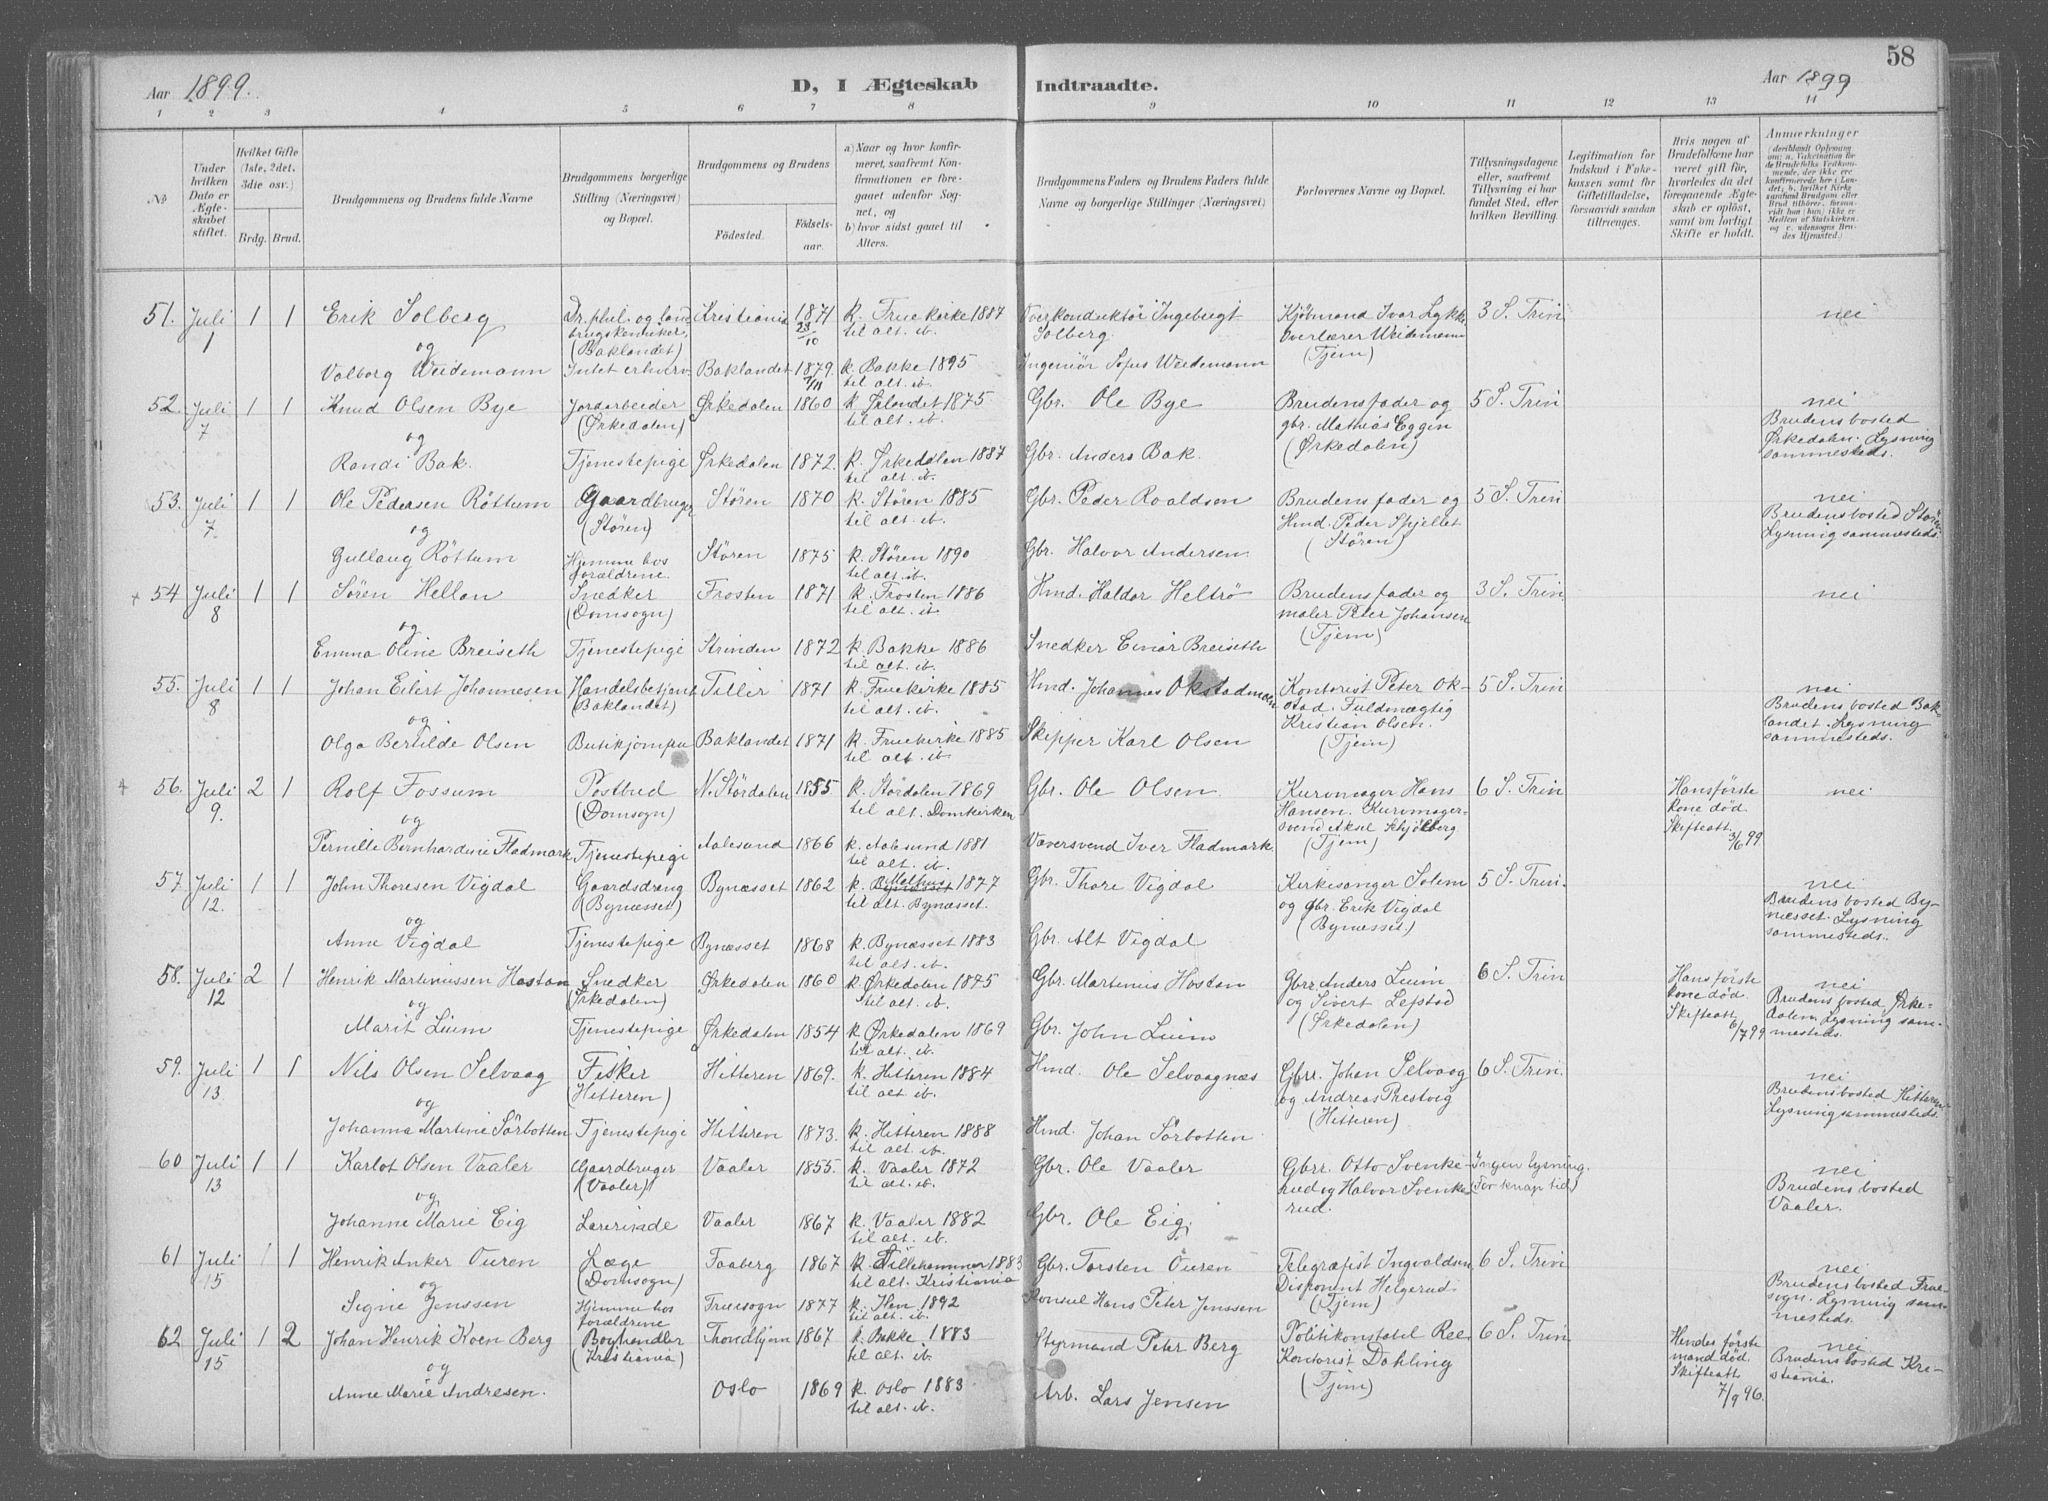 58
Aar 1899. D, I Ægteskab Indtraadte. Aar 1899
1 2 3 4 5 6 7 8 9 10 11 12 13 14
№
Under hvilken Dato er Ægteskabet stiftet.
Hvilket Gifte (1ste, 2det, 3die osv.)
Brdg. Brud.
Brudgommens og Brudens fulde Navne
Brudgommens borgerlige Stilling (Næringsvei) og Bopæl.
Brudgommens og Brudens
Födested. Födselsaar.
a) Naar og hvor konfirmeret, saafremt Konfirmationen er foregaaet udenfor Sognet, og
b) hvor sidst gaaet til Alters.
Brudgommens Faders og Brudens Faders fulde Navne og borgerlige Stillinger (Næringsvei)
Forlovernes Navne og Bopæl.
Tillysningsdagene, eller, saafremt Tillysning ei har fundet Sted, efter hvilken Bevilling.
Legitimation for Indskud i Enkekassen samt for Giftetilladelse, forsaavidt saadan tiltrænges.
Hvis nogen af Brudefolkene har været gift før, hvorledes da det foregaaende Ægteskab er opløst, samt om lovligt Skifte er holdt.
Anmerkninger
51. Juli 1 1 1 Erik Solberg Dr. phil. og landbrugskemiker, (Baklandet) Kristiania 1871 23/10 k. Fruekirke 1887 til alt. ib. Overkonduktør Ingebrigt Solberg. Kjøbmand Ivar Lykke Overlærer Weidemann (Tjem) 3 S. Trin nei
og
Valborg Weidemann Intet erhverv. Baklandet 1879. 7/11 k. Bakke 1895 til alt. ib. Ingeniör Sofus Weidemann
52. Juli 7 1 1 Knud Olsen Bye Jordarbeider (Ørkedalen) Ørkedalen 1860 k. Ørlandet 1875 til alt. ib. Gbr. Ole Bye Brudens fader og gbr. Mathias Eggen (Ørkedalen) 5 S. Trin nei Brudens bosted Ørkedalen. Lysning sammesteds.
og
Randi Bak. Tjenestepige Ørkedalen 1872. k. Ørkedalen 1887 til alt. ib. Gbr. Anders Bak.
53. Juli 7. 1 1 Ole Pedersen Röttum Gaardbruger (Stören) Stören 1870 k. Stören 1885 til alt. ib. Gbr. Peder Roaldsen Brudens fader og Hmd. Peder Spjellet (Stören) 5 S. Trin nei Brudens bosted Stören. Lysning sammesteds.
og
Gullaug Röttum Hjemme hos forældrene. Stören 1875 k. Stören 1890 til alt. ib. Gbr. Halvor Andersen
54 Juli 8 1 1 Sören Hellan Snedker (Domsogn) Frosten 1871 k. Frosten 1886 til alt. ib Hmd. Haldor Heltrö Brudens fader og maler Peter Johansen (Tjem) 3 S. Trin nei
og
Emma Oline Breiseth Tjenestepige Strinden 1872 k. Bakke 1886 til alt. ib. Snedker Einar Breiseth
55. Juli 8 1 1 Johan Eilert Johannesen Handelsbetjent (Baklandet) Tiller 1871 k. Fruekirke 1885 til alt. ib. Hmd. Johannes Okstadmoen Kontorist Peter Okstad. Fuldmægtig Kristian Olsen. (Tjem) 5 S. Trin nei Brudens bosted Baklandet. Lysning sammesteds.
og
Olga Bertilde Olsen Butikjomfru Baklandet 1871 k. Fruekirke 1885 til alt. ib. Skipper Karl Olsen
56. Juli 9. 2 1 Rolf Fossum Postbud (Domsogn) N. Stördalen 1855 k. Stördalen 1869 til alt. Domkirken Gbr. Ole Olsen. Kurvmager Hans Hansen. Kurvmagersvend Aksel Schjölberg (Tjem) 6 S. Trin Hans første kone död. Skifteatt. 3/6 99 nei
og
Pernille Bernhardine Fladmark Tjenestepige Aalesund 1866 k. Aalesund 1881 til alt. ib. Væversvend Iver Fladmark.
57. Juli 12. 1 1 John Thoresen Vigdal Gaardsdreng (Bynæsset) Bynæsset 1862 k. Bynæsset Melhus 1877 til alt. Bynæsset. Gbr. Thore Vigdal Kirkesanger Solem og Gbr. Erik Vigdal (Bynæsset) 5 S. Trin. nei Brudens bosted Bynæsset. Lysning sammesteds.
og
Anne Vigdal Tjenestepige Bynæsset 1868 k. Bynæsset 1883 til alt. ib. Gbr. Alt Vigdal
58. Juli 12 2 1 Henrik Martinussen Hoston Snedker (Ørkedalen) Ørkedalen 1860 k. Ørkedalen 1875 til alt. ib. Gbr. Martinus Hoston Gbrr. Anders Lium og Sivert Lefstad (Ørkedalen) 6 S. Trin Hans første kone död. Skifteatt. 6/7 99 nei Brudens bosted Ørkedalen. Lysning sammesteds.
og
Marit Lium Tjenestepige Ørkedalen 1854 k. Ørkedalen 1869 til alt. ib. Gbr. John Lium
59. Juli 13. 1 1 Nils Olsen Selvaag Fisker (Hitteren) Hitteren 1869. k. Hitteren 1884 til alt. ib. Hmd. Ole Selvaagnæs Gbrr. Johan Selvaag og Andreas Prestvig (Hitteren) 6 S. Trin. nei Brudens bosted Hitteren. Lysning sammesteds.
og
Johanna Martine Sörbotten Tjenestepige Hitteren 1873. k. Hitteren 1888 til alt. ib. Hmd. Johan Sörbotten
60 Juli 13 1 1 Karlot Olsen Vaaler Gaardbruger (Vaaler) Vaaler 1855. k. Vaaler 1872 til alt. ib. Gbr. Ole Vaaler Gbrr. Otto Svenkerud og Halvor Svenkerud. Ingen lysning. (For knap tid) nei Brudens bosted Vaaler.
og
Johanne Marie Eig Lærerinde Vaaler 1867 k. Vaaler 1882 til alt. ib. Gbr. Ole Eig.
61 Juli 15 1 1 Henrik Anker Ouren Læge (Domsogn) Faaberg 1867 k. Lillehammer 1883 til alt. Kristiania Gbr. Torsten Ouren Telegrafist Ingvaldsen Disponent Helgerud (Tjem) 6 S. Trin nei Brudens bosted Fruesogn. Lysning sammesteds.
og
Signe Jenssen Hjemme hos forældrene Fruesogn 1877 k. Ilen 1892 til alt. ib. Konsul Hans Peter Jenssen
62 Juli 15 1 2 Johan Henrik Koen Berg Boghandler (Kristiania) Trondhjem 1867 k. Bakke 1883 til alt. ib. Styrmand Peter Berg Politikonstabel Ree Kontorist Dahling (Tjem) 6 S. Trin Hendes første mand död. Skifteatt. 7/9 96. nei Brudens bosted Kristiania.
og
Anne Marie Andresen. Oslo 1869 k. Oslo 1883 til alt. ib. Arb. Lars Jensen